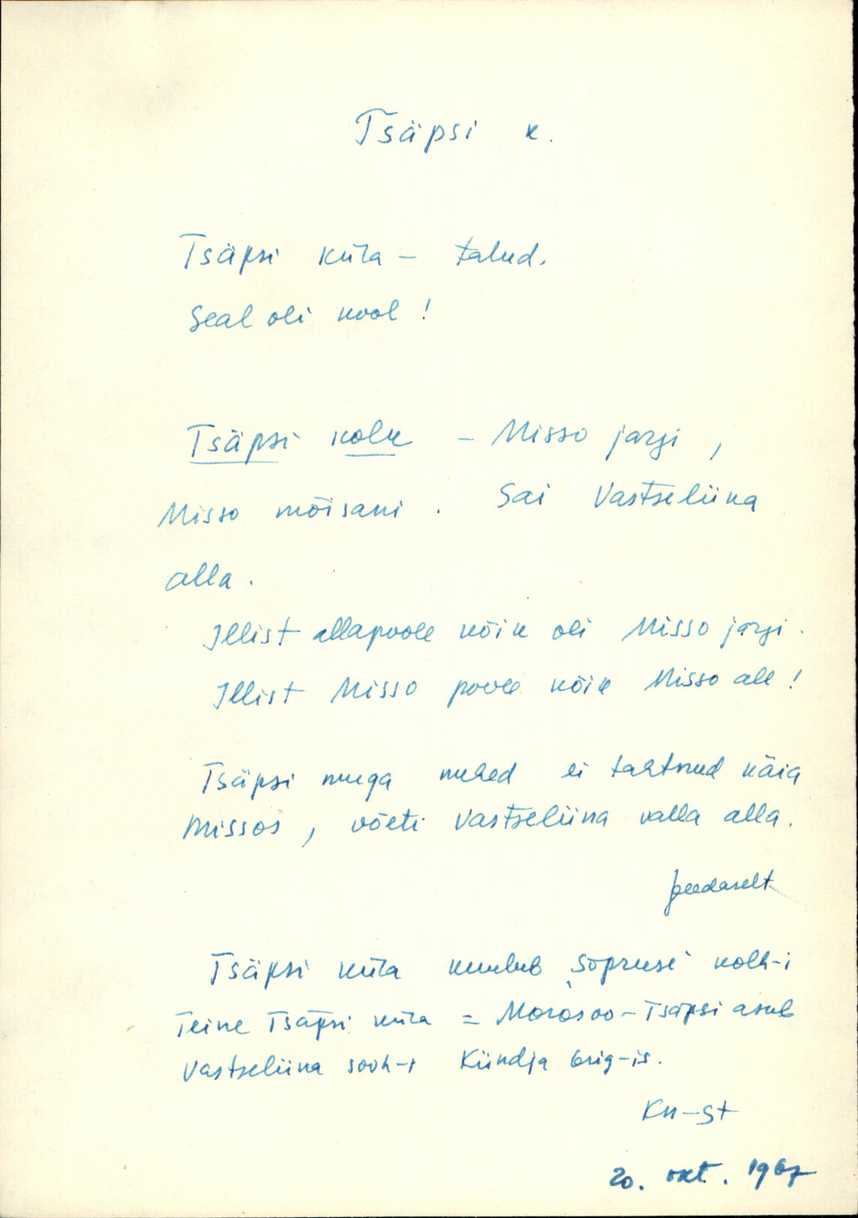 Tsäpsi k.
Tsäpsi küla – talud.
Seal oli kool!
Tsäpsi kolk – Misso jargi,
Misso mõisani. Sai Vastseliina
alla.
Illist allapoole kõik oli Misso jargi.
Illist Misso poole kõik Misso all!
Tsäpsi nurga mehed ei tahtnud käia
Missos, võeti Vastseliina valla alla.
Tsäpsi küla kuulub "Sõpruse" kolh-i
Teine Tsäpsi küla = Morosoo-Tsäpsi asub
Vastseliina sovh-i Kündja brig-is.
Kn-st
20. okt. 1967